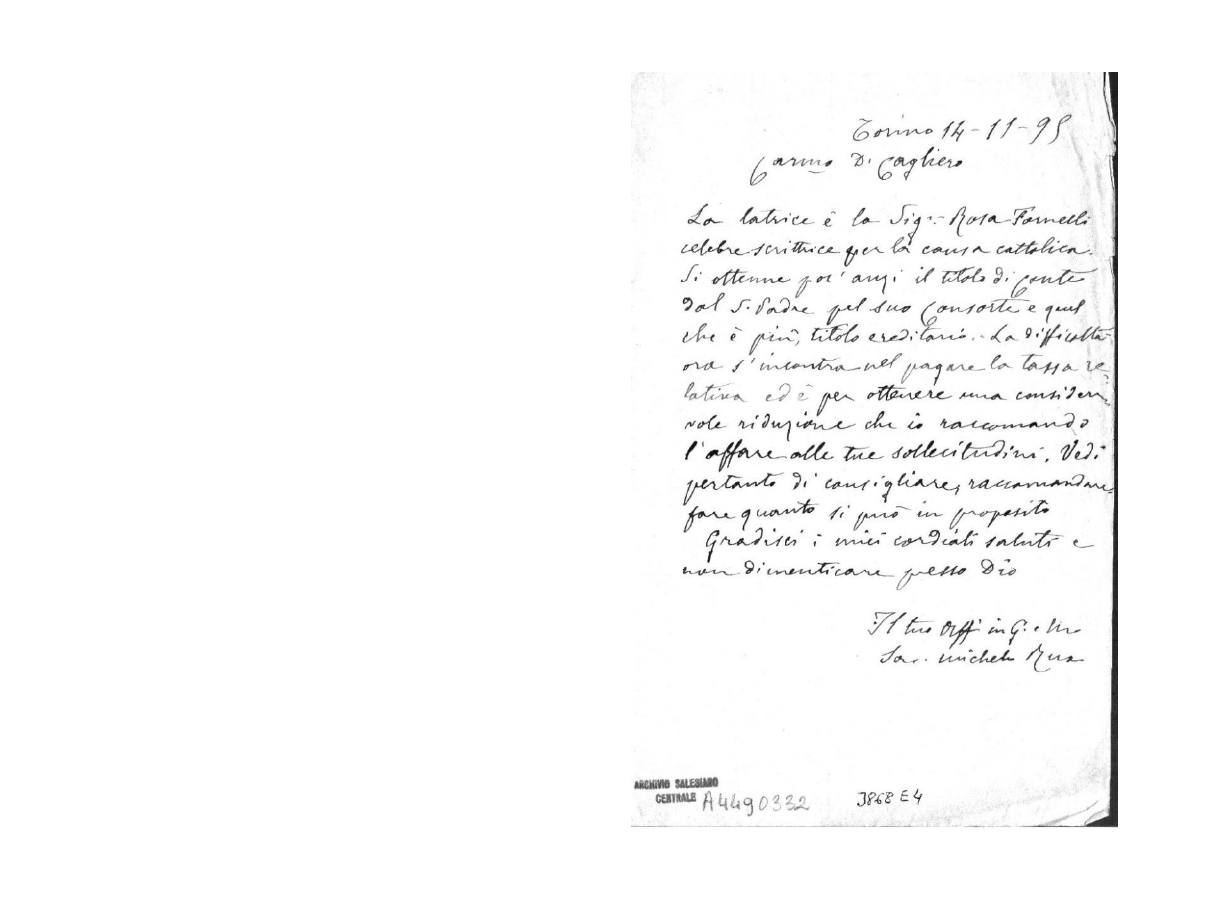 Torino 14-11-95
Carmo D. Cagliero
La latrice è la Sig.- Rosa
celebre scrittrice per la causa cattolica.
Si ottenne poc'anzi il titolo di Conte
dal S. Padre pel suo Consorte e quel
che è più, titolo ereditario. - La difficoltà
ora s'incontra nel pagare la tassa re=
lativa ed è per ottenere una considere-
vole riduzione che io raccomando
l'affare alle tue sollecitudini. Vedi
pertanto di consigliare, raccomandare,
fare quanto si può in proposito
Gradisci i miei cordiali saluti e
non dimenticare presso Dio
Il tuo aff in G. e M.
Sac. Michele Rua
ARCHIVIO SALESIANO
CENTRALE A4490332 3868 E4